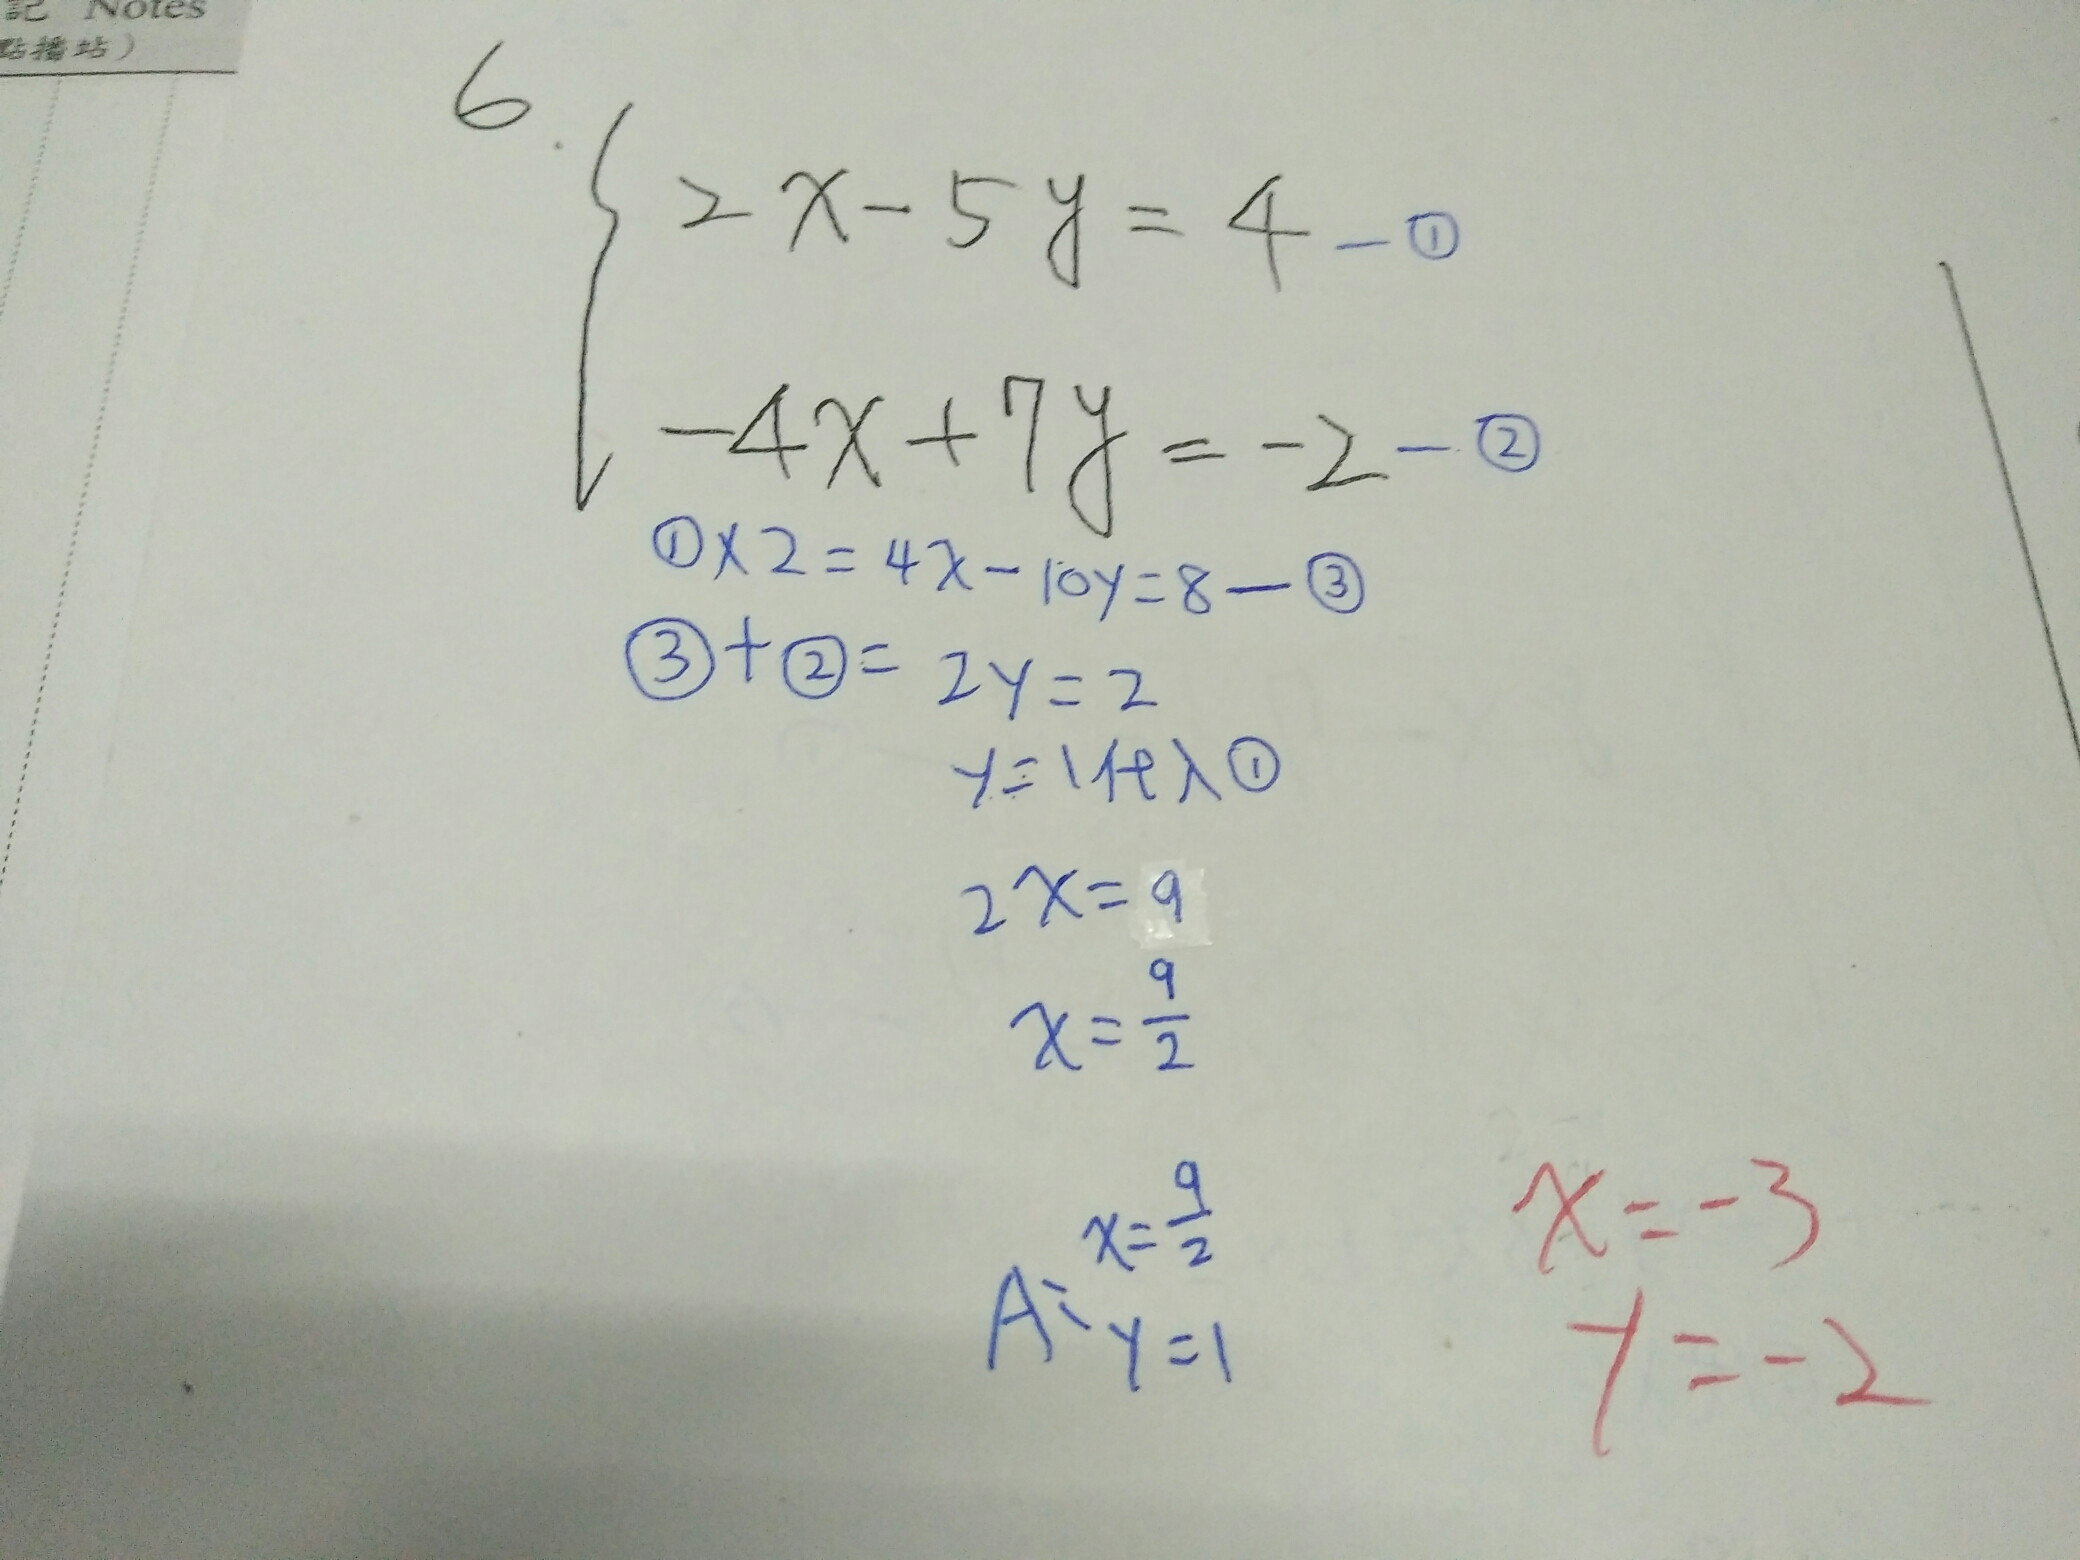 記 Notes
點播站）
6.
2x-5y=4-①
-4x+7y=-2-②
①x2=4x-10y=8-③
③+②=2y=2
y=1代入①
2x=9
x=9/2
x=9/2
A: y=1
x=-3
y=-2